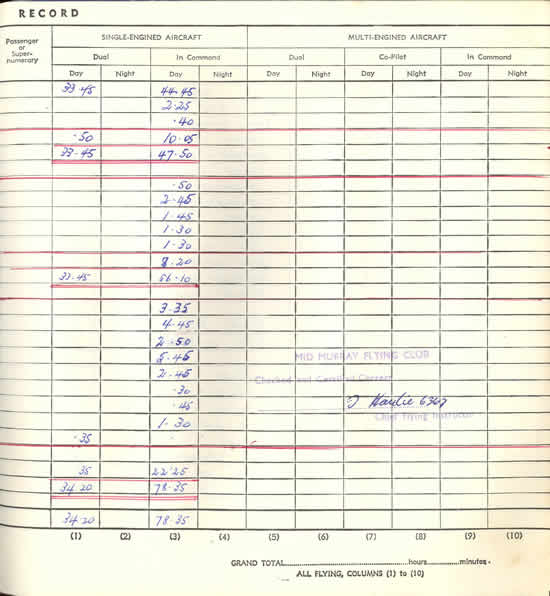 RECORD
Passenger or Super-numerary SINGLE-ENGINED AIRCRAFT MULTI-ENGINED AIRCRAFT
Dual In Command Dual Co-Pilot In Command
Day Night Day Night Day Night Day Night Day Night
33.45 44.45
2.25
.40
.50 10.05
33.45 47.50
.50
2.45
1.45
1.30
1.30
8.20
33.45 56.10
3.35
4.45
2.50
5.45
2.45
.30
.45
1.30
MID MURRAY FLYING CLUB
Checked and Certified Correct
Hardie 6367
Chief Flying Instructor
.35
35 22.25
34.20 78.35
34.20 78.35
(1) (2) (3) (4) (5) (6) (7) (8) (9) (10)
GRAND TOTAL hours minutes.
ALL FLYING, COLUMNS (1) to (10)